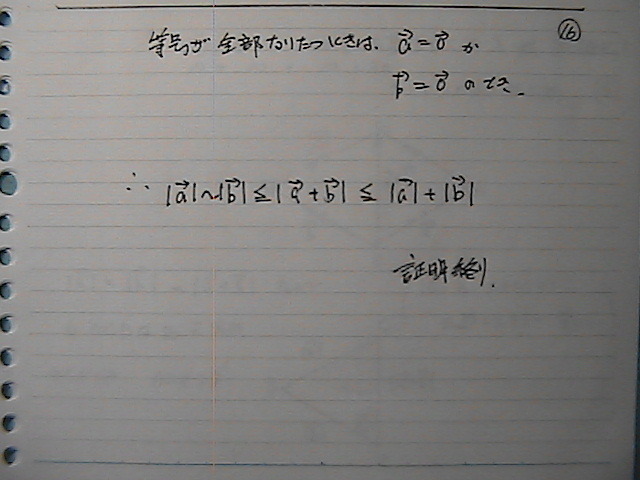 等号が全部なりたつときは、 a⃗ = 0⃗ か ⑯
b⃗ = 0⃗ のとき。
∴ |a⃗|~|b⃗| ≤ |a⃗ + b⃗| ≤ |a⃗| + |b⃗|
証明終り.